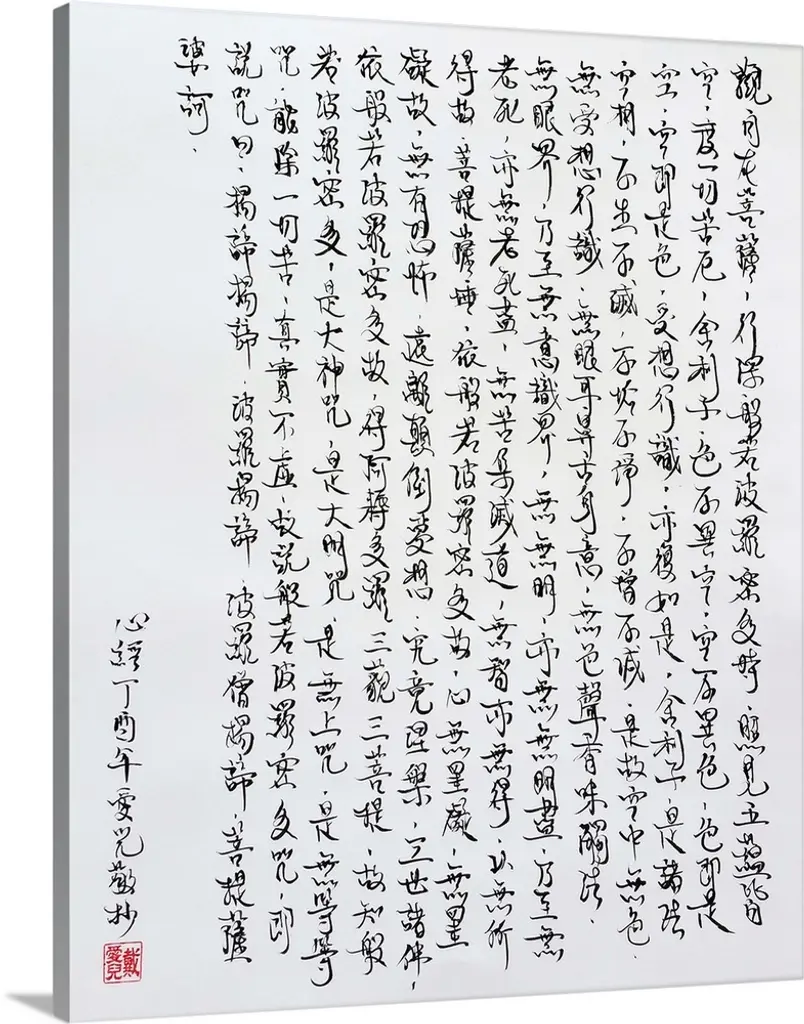 觀自在菩薩，行深般若波羅密多時，照見五蘊皆
空，度一切苦厄，舍利子，色不異空，空不異色，色即是
空，空即是色，受想行識，亦復如是，舍利子，是諸法
空相，不生不滅，不垢不淨，不增不減，是故空中無色，
無受想行識，無眼耳鼻舌身意，無色聲香味觸法，
無眼界，乃至無意識界，無無明，亦無無明盡，乃至無
老死，亦無老死盡，無苦集滅道，無智亦無得，以無所
得故，菩提薩埵，依般若波羅密多故，心無罣礙，無罣
礙故，無有恐怖，遠離顛倒夢想，究竟涅槃，三世諸佛，
依般若波羅密多故，得阿耨多羅三藐三菩提，故知般
若波羅密多，是大神咒，是大明咒，是無上咒，是無等等
咒，能除一切苦，真實不虛，故說般若波羅密多咒，即
說咒曰，揭諦揭諦，波羅揭諦，波羅僧揭諦，菩提薩
婆訶，
心經丁酉年愛兒敬抄
戴愛兒